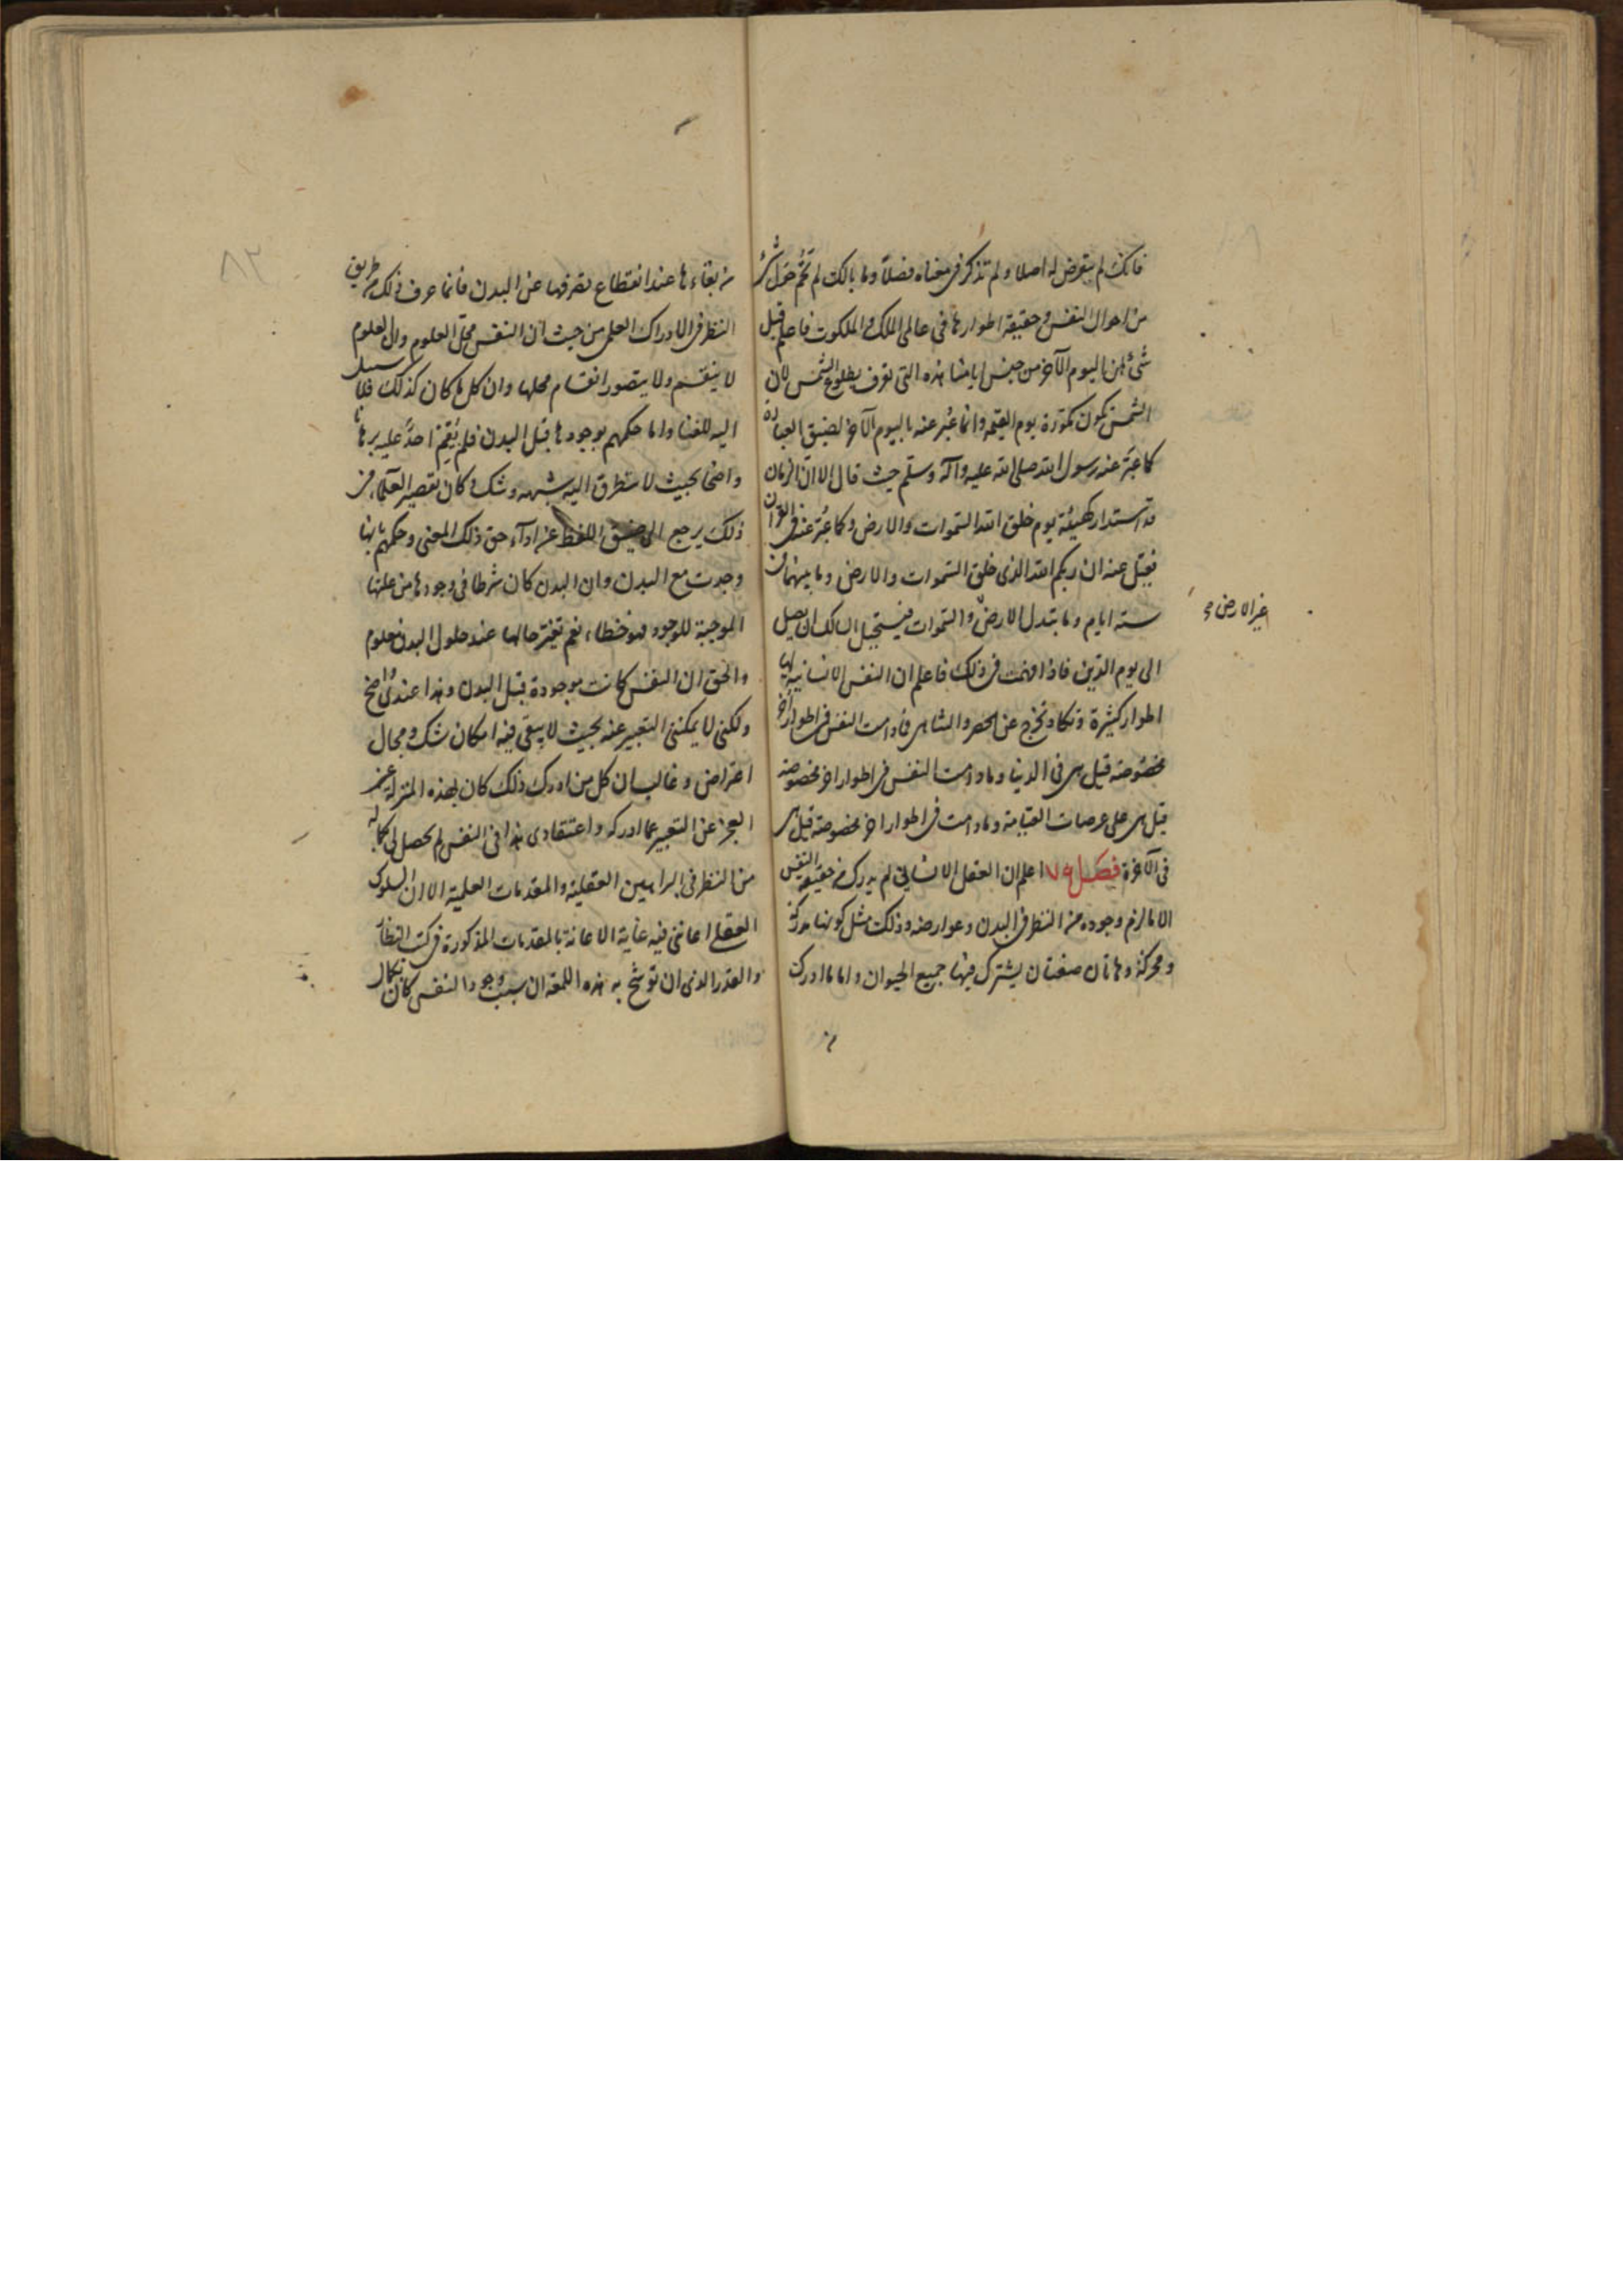 فانك لم يتعرض له اصلا ولم تذكر فى معناه فصلا وما بالك لم تحم حول شئ
من احوال النفس وحقيقة اطوارها فى عالمى الملك والملكوت فاعلم قبل
شئ ان اليوم الآخر من جنس ايامنا هذه التى تعرف بطلوع الشمس لان
الشمس تكون مكورة يوم القيمة وانما عبر عنه باليوم الآخر لضيق العبارة
كما عبر عنه رسول الله صلى الله عليه وآله وسلم حيث قال الا ان الزمان
قد استدار كهيئة يوم خلق الله السموات والارض وكما عبر عنه فى القرآن
فقيل عنه ان ربكم الله الذى خلق السموات والارض وما بينهما فى
ستة ايام وما تبدل الارض والسموات فيستحيل السالك ان يصل
غير الارض
الى يوم الدين فاذا فهمت فى ذلك فاعلم ان النفس الانسانية لها
اطوار كثيرة وتكاد تخرج عن الحصر والتناهى فما دامت النفس فى اطوار اخر
مخصوصة قيل هى فى الدنيا وما دامت النفس فى اطوار اخر مخصوصة
قيل هى على عرصات القيامة وما دامت فى اطوار اخر مخصوصة قيل هى
فى الآخرة فصل ٧٩ اعلم ان العقل الانسانى لم يدرك من حقيقة النفس
الا ما لزم وجوده من النظر فى البدن وعوارضه وذلك مثل كونها مدركة
ومحركة وهاتان صفتان يشترك فيها جميع الحيوان واما ما ادرك
من
٨٢
من بقاءها عند انقطاع تصرفها عن البدن فانما عرف ذلك من طريق
النظر فى الادراك العلمى من حيث ان النفس محل العلوم وان العلوم
لا ينقسم ولا يتصور انقسام محلها وان كل ما كان كذلك فلا سبيل
اليه للفناء واما حكمهم بوجودها قبل البدن فلم يقم احد عليه برهانا
واضحا بحيث لا يتطرق اليه شبهه وشك وكان تقصير العلماء من
ذلك يرجع الى ضيق اللفظ عن ادآء حق ذلك المعنى وحكمهم بانها
وجدت مع البدن وان البدن كان شرطا فى وجودها من علتها
الموجبة للوجود فهو خطاء نعم تغير حالها عند حلول البدن معلوم
والحق ان النفس كانت موجودة قبل البدن وهذا عندى واضح
ولكنى لا يمكننى التعبير عنه بحيث لا يبقى فيه امكان شك ومجال
اعتراض وغالب ان كل من ادرك ذلك كان بهذه المنزلة من
العجز عن التعبير عما ادركه واعتقادى هذا فى النفس لم يحصل لى بكماله
من النظر فى البراهين العقلية والمقدمات العلمية الا ان السلوك
العقلى اعاننى فيه غاية الاعانة بالمقدمات المذكورة فى كتب النظار
والقدر الذى ان توشح به هذه اللمعة ان سبب وجود النفس كان بكمال